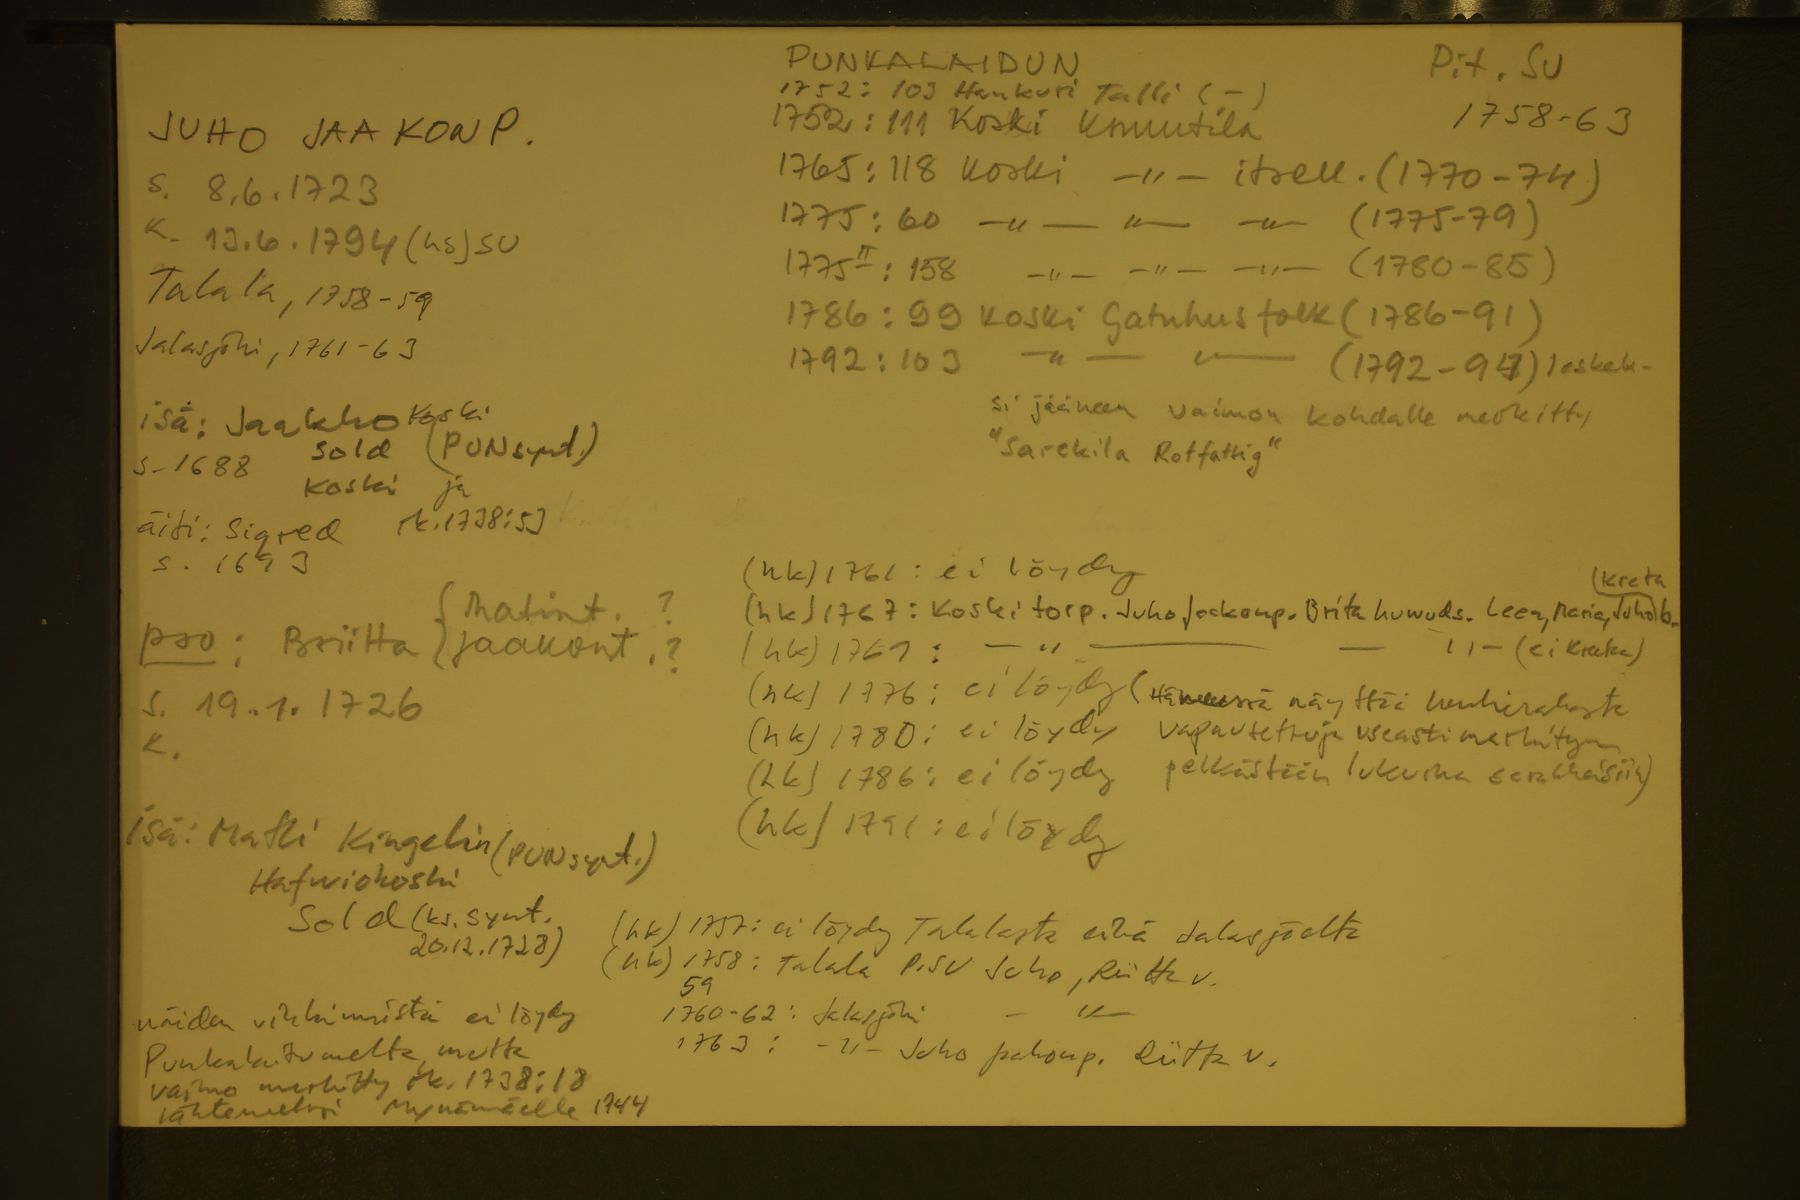 JUHO JAAKONP.
s. 8.6.1723
k. 13.6.1794 (hs) SU
Talala, 1758-59
Jalasjöki, 1761-63
isä: Jaakko Koski
sold (PUN synt.)
s. 1688
Koski ja
äiti: Sigred rk. 1738:53
s. 1693
pso: Briitta { Matint. ?
Jaakont. ?
s. 19.1.1726
k.
isä: Matti Kingelin (PUN synt.)
Sold (ks. synt.
20.12.1728)
näiden vihkimistä ei löydy
Punkalaitumelta, mutta
vaimo merkitty rk. 1738:18
lähteneeksi Mynämäelle 1744
PUNKALAIDUN
1752: 103 Hankuri Talli (-)
1752: 111 Koski Knuutila
1765: 118 Koski -"- itsell. (1770-74)
1775: 60 -"- -"- -"- (1775-79)
1775 II: 158 -"- -"- -"- (1780-85)
1786: 99 Koski Gatuhusfolk (1786-91)
1792: 103 -"- -"- (1792-94) leskek-
si jääneen vaimon kohdalle merkitty
"Sarekila Rotfattig"
Pit. SU
1758-63
(hk) 1761: ei löydy
(Kreta
(hk) 1767: Koski torp. Juho Jaakonp. Brita huwuds. Leen, Maria, Juho b.
(hk) 1769: -"- - "- (ei Kreeta)
(hk) 1776: ei löydy ( näyttää henkirahasta
(hk) 1780: ei löydy vapautettuja useasti merkityn
(hk) 1786: ei löydy pelkästään lukuina sarakkeisiin)
(hk) 1791: ei löydy
(hk) 1757: ei löydy Talalasta eikä Jalasjöeltä
(hk) 1758: Talala P.SU Juho, Riitta v.
59
1760-62: Jalasjöki - "-
1763: -"- Juho Jaakonp. Riitta v.